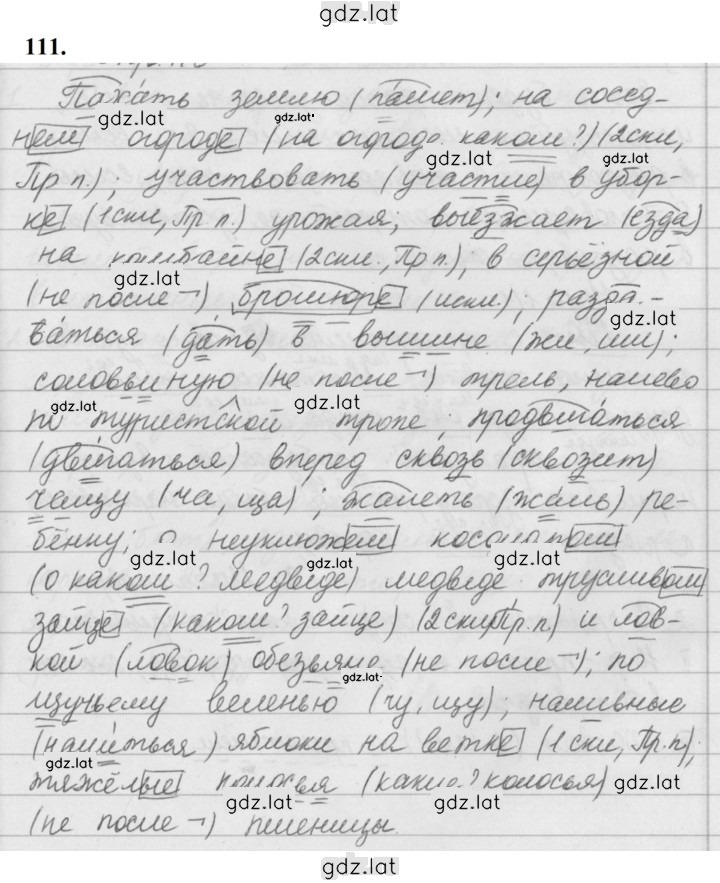 gdz.lat
111.
Пахать землю (пашет); на сосед-
gdz.lat gdz.lat
нем огороде (на огороде каком?) (2скл,
gdz.lat
Пр п.); участвовать (участие) в убор-
ке (1скл, Пр п.) урожая, выезжает (езда)
на комбайне (2скл., Пр п.), в серьёзной
gdz.lat
(не после ¬) брошюре (искл.); разда-
gdz.lat
ваться (дать) в вышине (жи, ши);
соловьиную (не после ¬) трель, налево
gdz.lat gdz.lat
по туристской тропе, продвигаться
(двигаться) вперед сквозь (сквозит)
чащу (ча, ща); жалеть (жаль) ре-
бёнку; о неуклюжем косолапом
gdz.lat gdz.lat gdz.lat
(о каком? медведе) медведе трусливом
зайце (каком? зайце) (2скл, Пр.п) и лов-
кой (ловок) обезьяне (не после ¬); по
gdz.lat
щучьему веленью (чу, щу), наливные
(налиться) яблоки на ветке (1скл, Пр.п);
gdz.lat
тяжёлые колосья (какие? колосья)
gdz.lat gdz.lat
(не после ¬) пшеницы.
gdz.lat